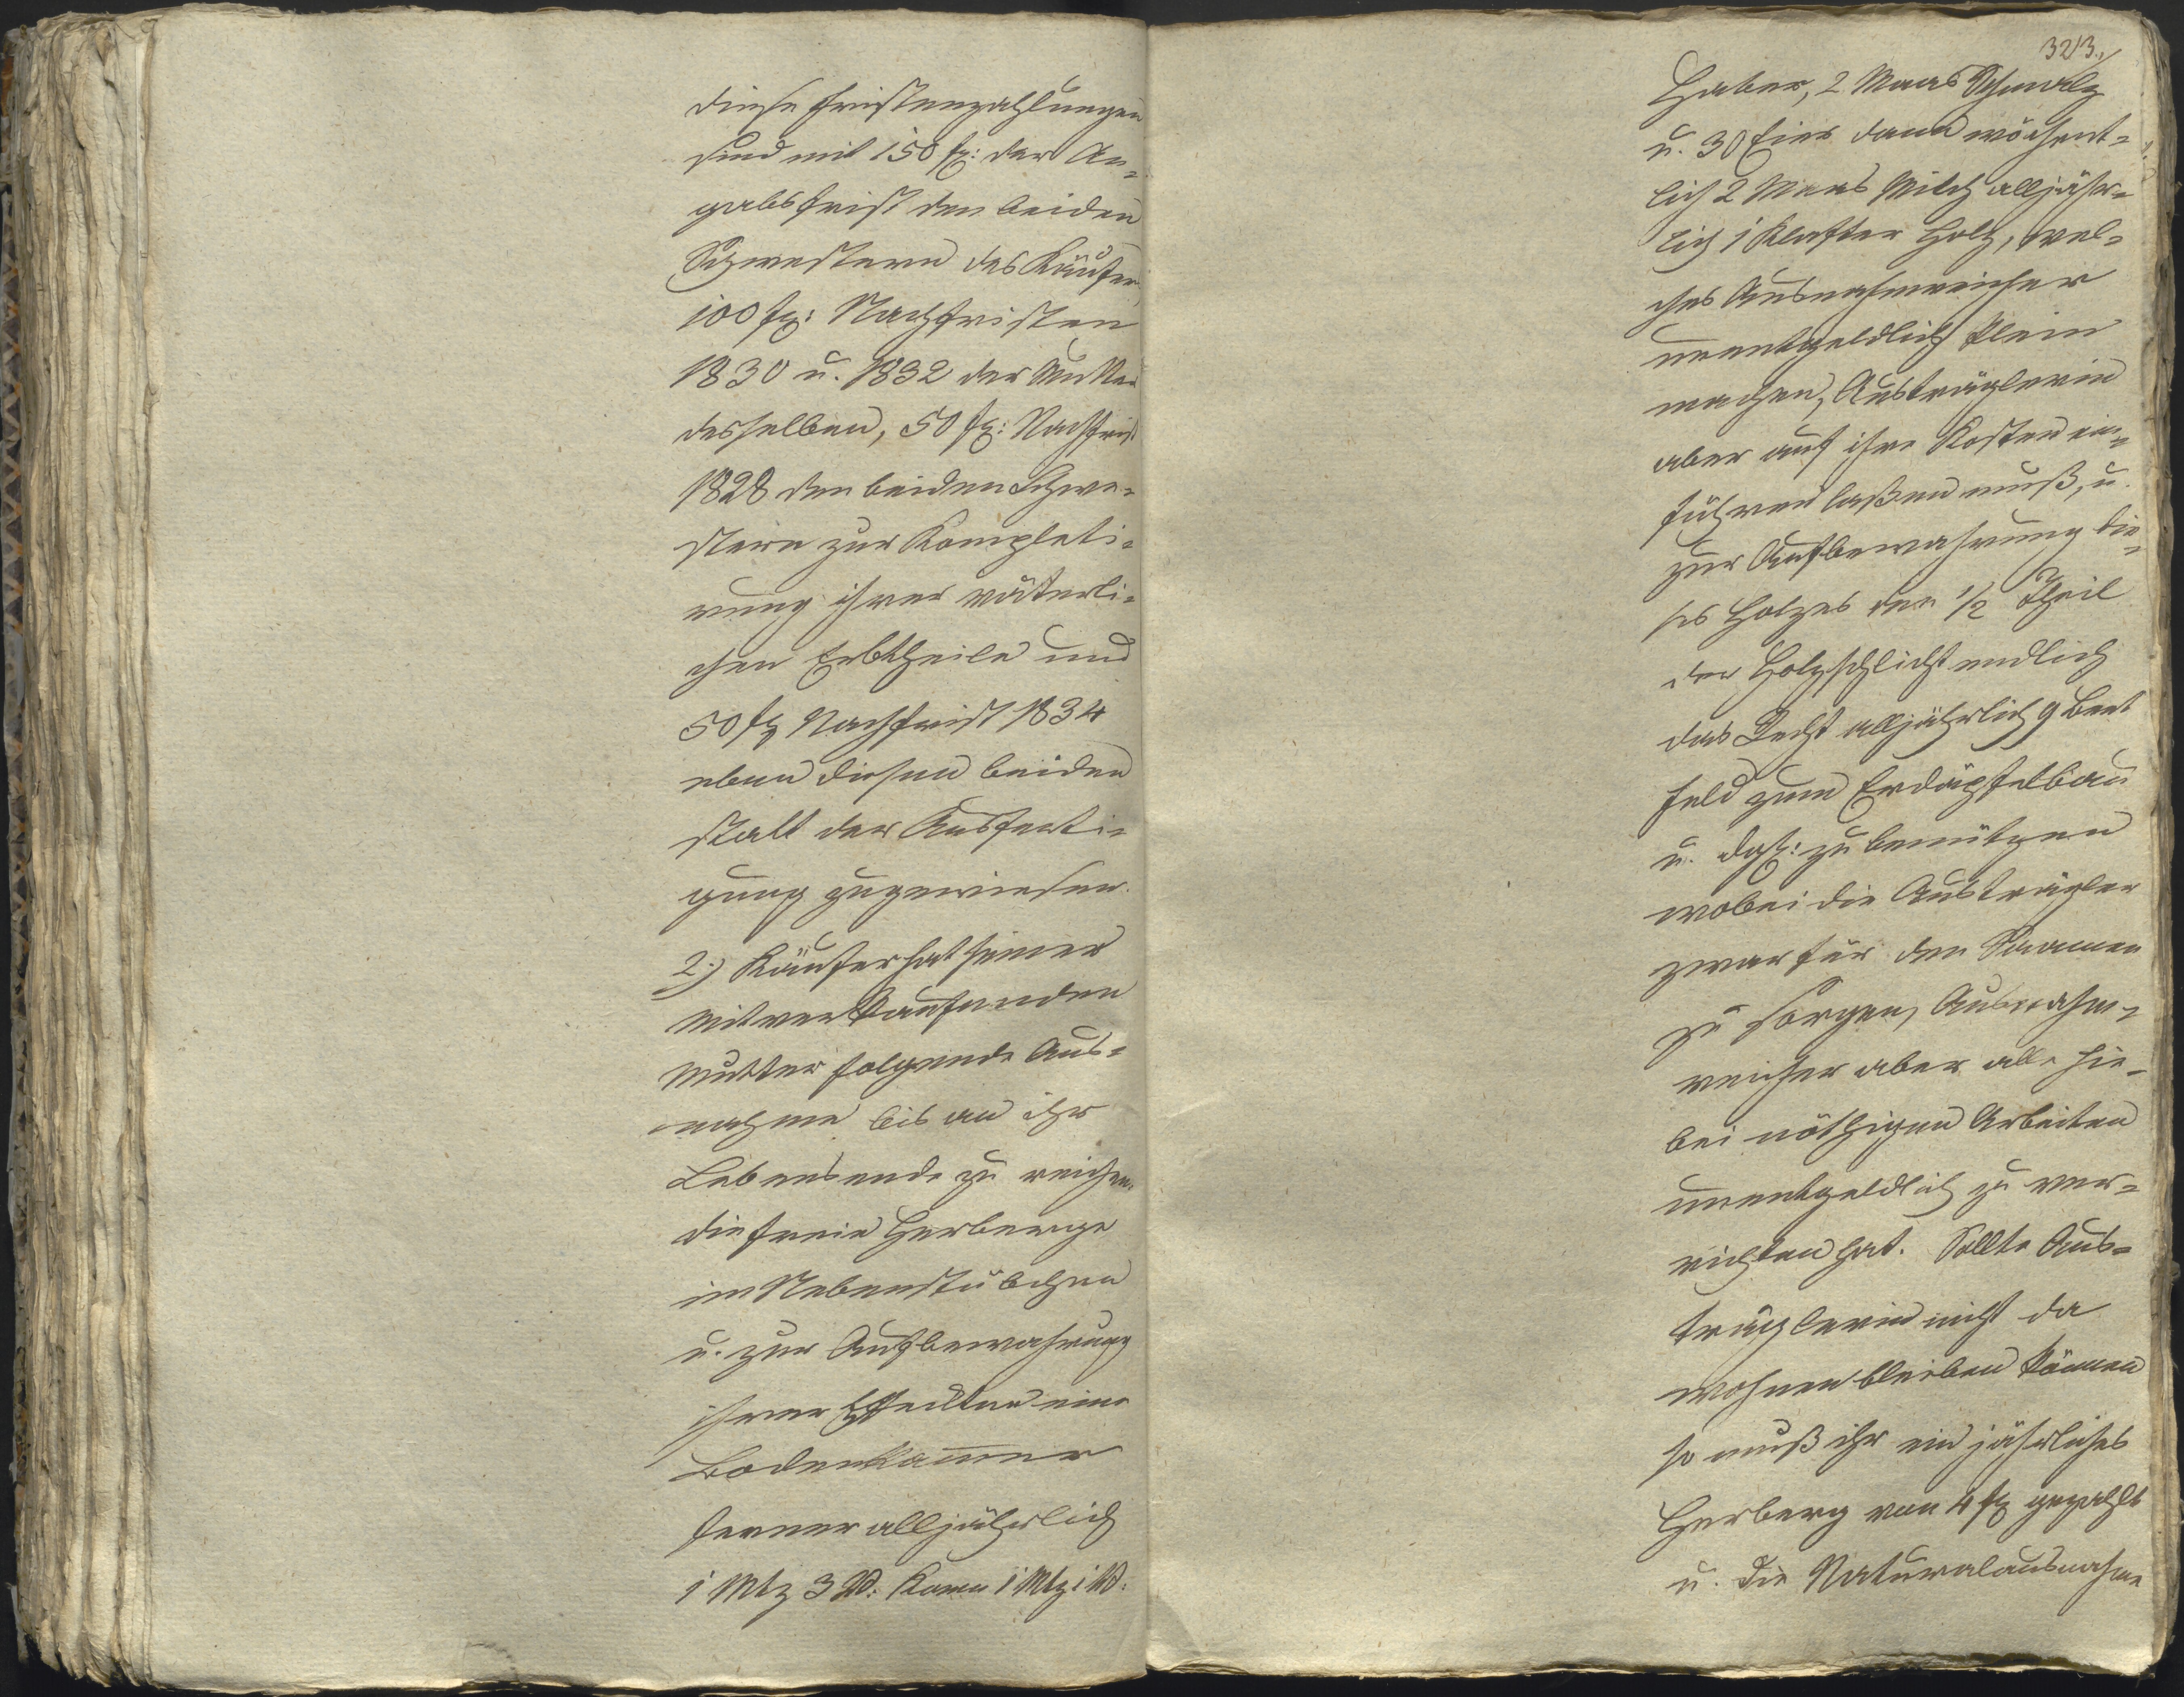 diese Fristenzahlungen
sind mit 150 fl: der An¬
gabsfrist den beiden
Schwestern des Käufers,
100 fl: Nachfristen
1830 u. 1832 der Mutter
desselben, 50 fl: Nachfrist
1828 den beiden Schwe¬
stern zur Kompleti¬
rung ihrer väterli¬
chen Erbtheile und
50 fl Nachfrist 1834
eben diesen beiden
statt der Ausferti¬
gung zugewiesen.
2.) Käufer hat seiner
mitverkaufenden
Mutter folgende Aus¬
nahme bis an ihr
Lebensende zu reichen.
die freie Herberge
im Nebenstübchen
u. zur Aufbewahrung
ihrer Effeckten eine
Bodenkammer
ferner alljährlich
1 Mtz 3 V: Korn 1 Mtz 1 V:
323.
Haber, 2 Maas Schmalz
u. 30 Eier dann wöchent¬
lich 2 Maas Milch alljähr¬
lich 1 Klafter Holz, wel¬
ches Ausnahmreicher
unentgeldlich klein
machen, Austräglerin
aber auf ihre Kosten ein¬
führen laßen muß, u.
zur Aufbewahrung die¬
ses Holzes den 1/2 Theil
der Holzschlicht endlich
das Recht alljährlich 9 Beet
Feld zum Erdäpfelbau
u. dgl: zu benützen
wobei die Austrägler
zwar für den Saamen
zu sorgen, Ausnahm¬
reicher aber alle hie¬
bei nöthigen Arbeiten
unentgeldlich zu ver¬
richten hat. Sollte Aus¬
träglerin nicht da
wohnen bleiben können
so muß ihr ein jährliches
Herberg von 4 fl gezahlt
u. die Naturalausnahme